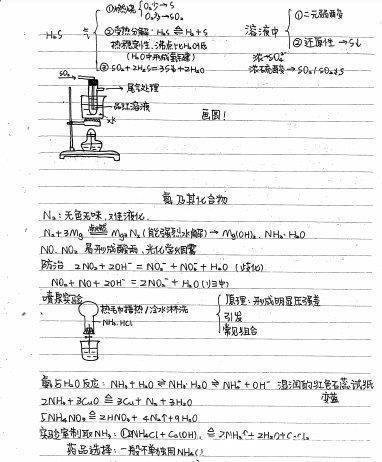 H₂S
气
①燃烧 O₂少→S
O₂多→SO₂
②受热分解：H₂S ≙ H₂+S
热稳定性、沸点比H₂O低
(H₂O中形成氢键)
③SO₂+2H₂S=3S↓+2H₂O
溶液中
①二元弱酸
②还原性→S↓
浓硫酸→SO₂/SO₂或S
SO₂
尾气处理
品红溶液
画图！
氮及其化合物
N₂：无色无味，难液化.
N₂+3Mg 点燃 Mg₃N₂ (能强烈水解)→Mg(OH)₂、NH₃·H₂O
NO、NO₂ 易形成酸雨、光化学烟雾
防治 2NO₂+2OH⁻=NO₃⁻+NO₂⁻+H₂O (歧化)
NO₂+NO+2OH⁻=2NO₂⁻+H₂O (归中)
喷泉实验
热毛巾捂热/冷水淋洗
NH₃、HCl
原理：形成明显压强差
引发
常见组合
氨与H₂O反应：NH₃+H₂O⇌NH₃·H₂O⇌NH₄⁺+OH⁻ 湿润的红色石蕊试纸
变蓝
2NH₃+3CuO ≙ 3Cu+N₂+3H₂O
5NH₄NO₃ ≙ 2HNO₃+4N₂↑+9H₂O
实验室制取NH₃：①2NH₄Cl+Ca(OH)₂ ≙ 2NH₃↑+2H₂O+CaCl₂
药品选择：一般不单独用NH₄Cl